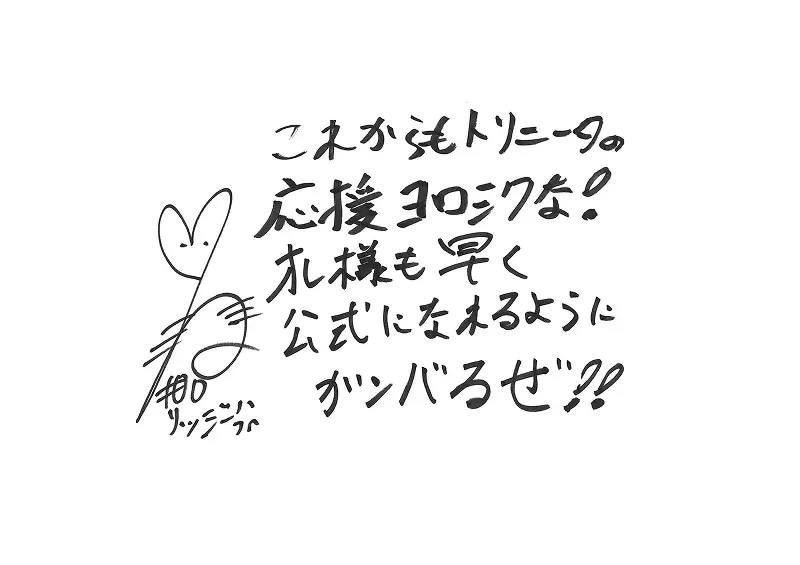 これからもトリニータの
応援ヨロシクな!
オレ様も早く
公式になれるように
ガンバるぜ!!
#00
リッジー